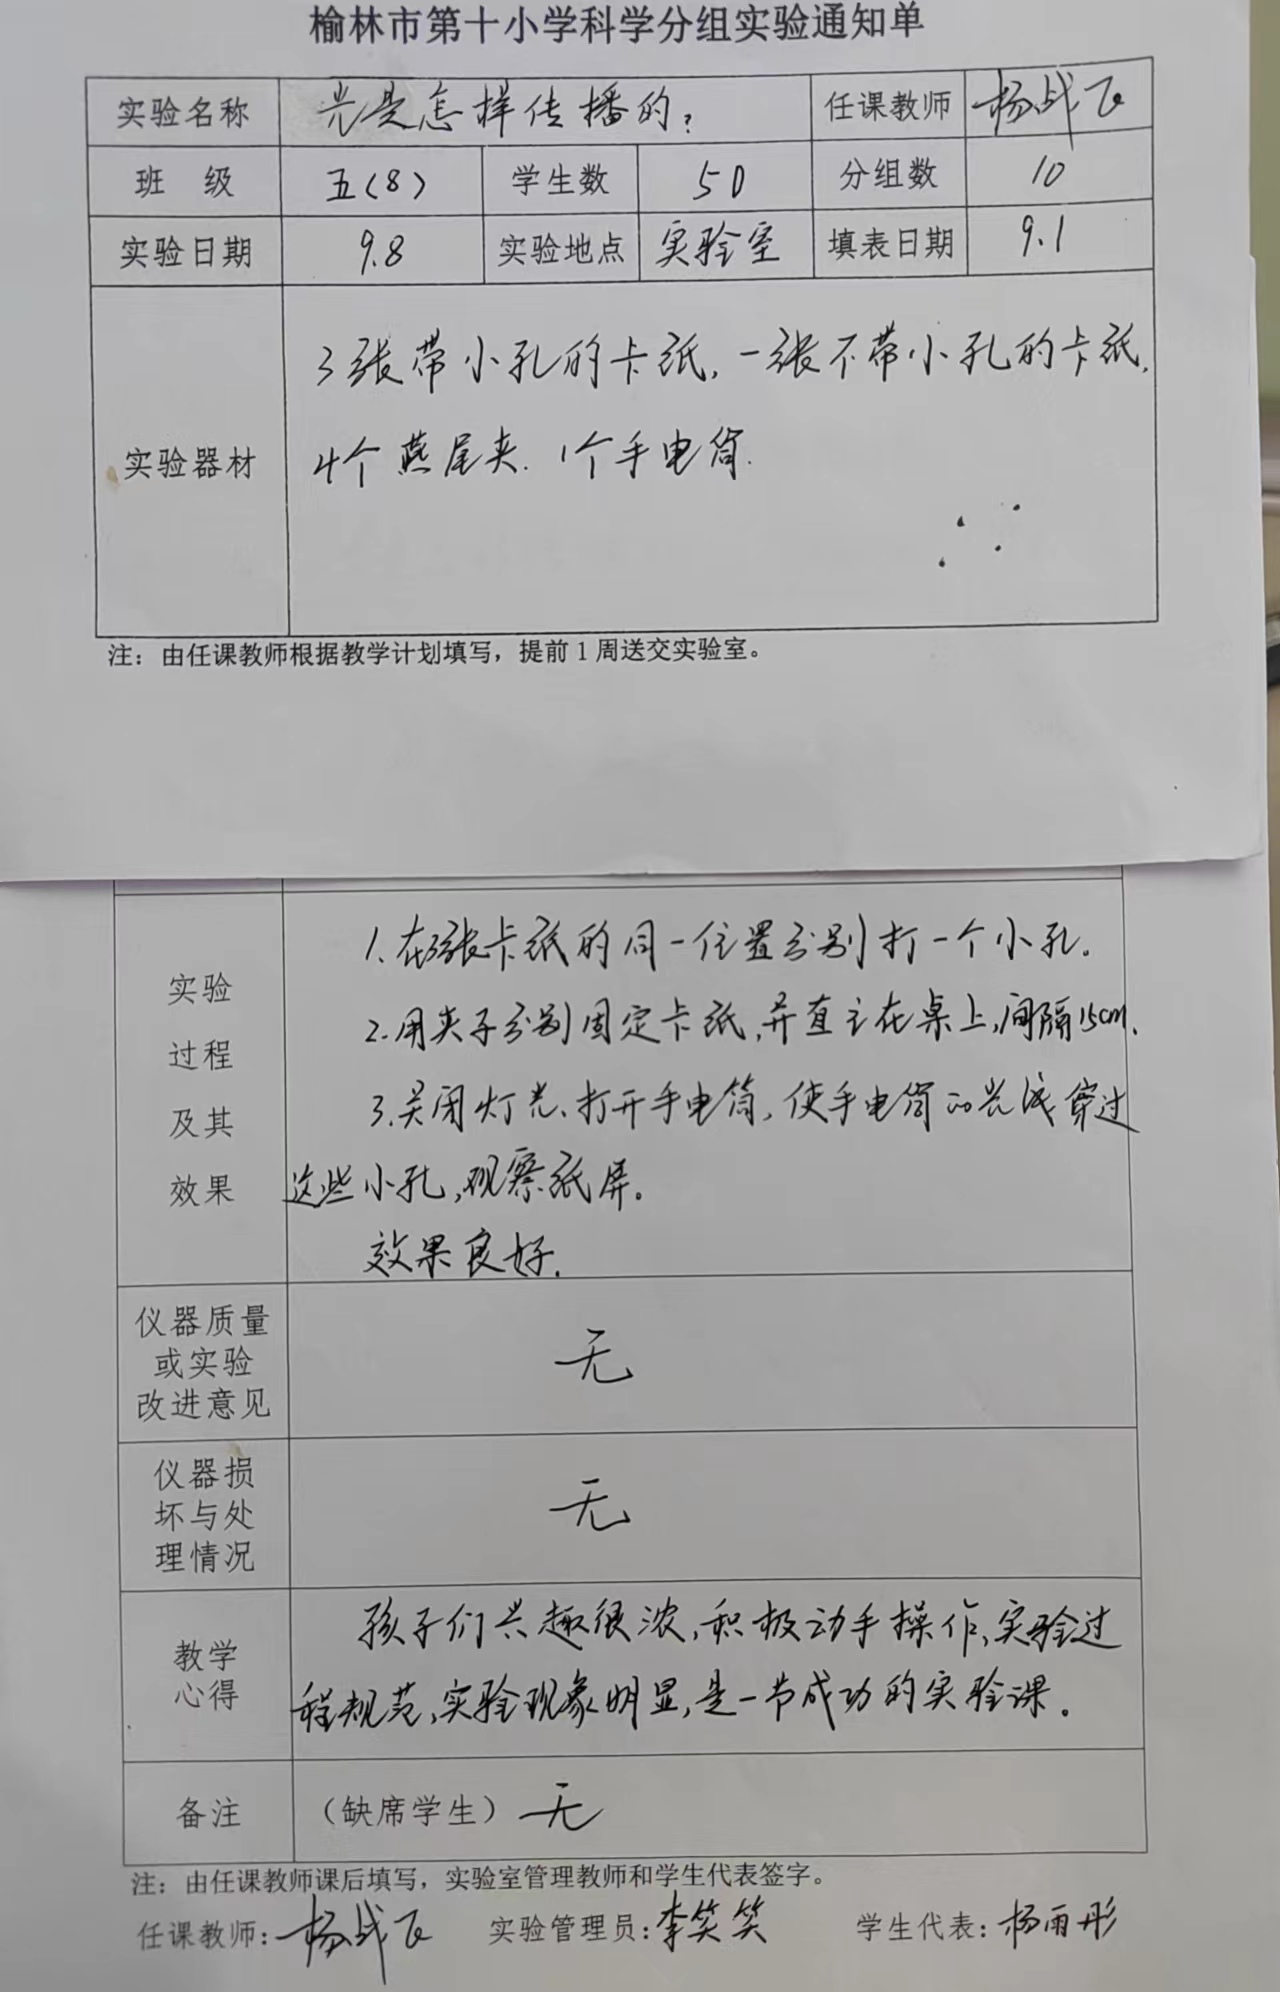 榆林市第十小学科学分组实验通知单
实验名称 光是怎样传播的? 任课教师 杨战飞
班 级 五(8) 学生数 50 分组数 10
实验日期 9.8 实验地点 实验室 填表日期 9.1
实验器材
3张带小孔的卡纸,一张不带小孔的卡纸,
4个燕尾夹.1个手电筒.
注:由任课教师根据教学计划填写,提前1周送交实验室。
实验
过程
及其
效果
1.在3张卡纸的同一位置分别打一个小孔。
2.用夹子分别固定卡纸,并直立在桌上,间隔15cm.
3.关闭灯光、打开手电筒,使手电筒的光线穿过
这些小孔,观察纸屏。
效果良好.
仪器质量
或实验
改进意见
无
仪器损
坏与处
理情况
无
教学
心得
孩子们兴趣很浓,积极动手操作,实验过
程规范,实验现象明显,是一节成功的实验课。
备注 (缺席学生) 无
注:由任课教师课后填写,实验室管理教师和学生代表签字。
任课教师:杨战飞 实验管理员:李笑笑 学生代表:杨雨彤